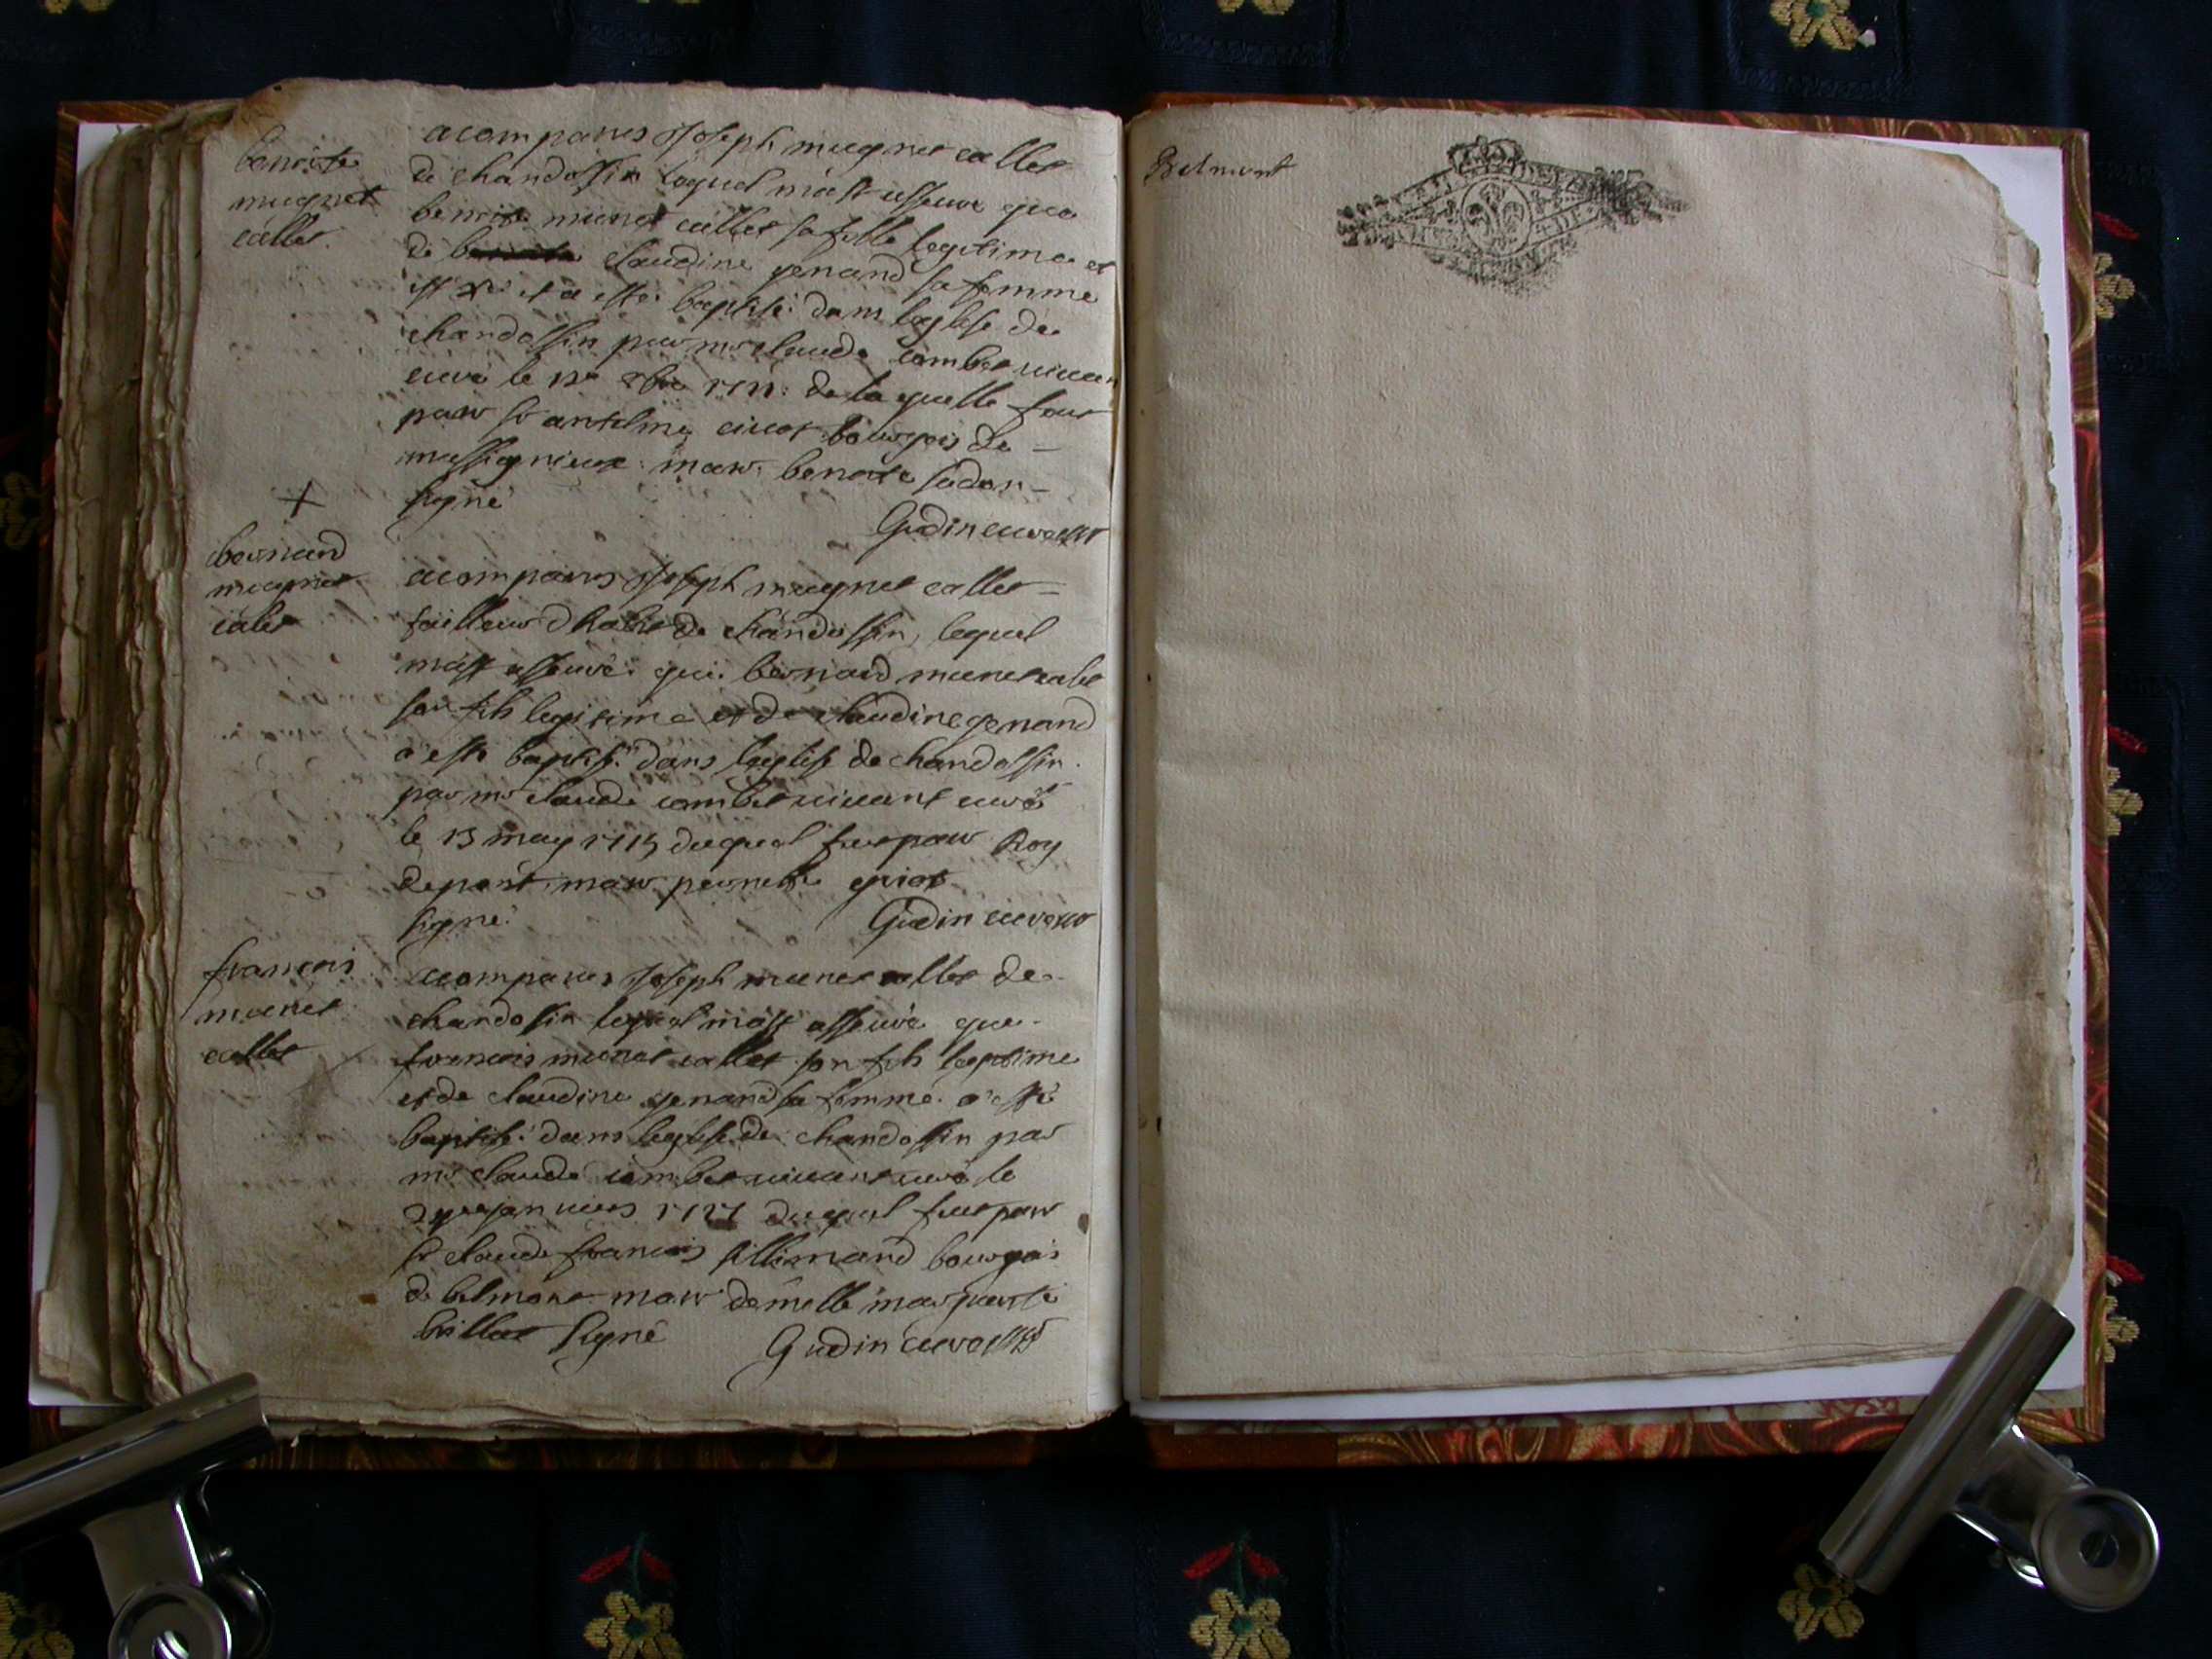 benoite
mugnet
callet.
acomparus Joseph mugnet callet
de chandossin lequel m'ast asseuré que
benoite munet callet sa fille legitime et
de claudine genand sa femme
est et a esté baptisé dans leglise de
chandossin par mr claude combet vivan
curé le 1711 de laquelle fout
parr sr antelme bourgois de
massignieux marr. benoite
signé
Gudin curé
bernard
mugnet
calet
acomparus Joseph mugnet callet
tailleur dhabit de chandossin, lequel
m'ast asseuré que bernard munet calet
son fils legitime et de claudine genand
a esté baptisé dans leglise de chandossin
par mr claude combet vivant curé
le 13 may 1715 duquel fut parr Roy
dupont marr pernette
signé
Gudin curé
francois
munet
callet
acomparus Joseph munet callet de
chandossin lequel m'ast asseuré que
francois munet callet son fils legitime
et de claudine genand sa femme a esté
baptisé dans leglise de chandossin par
mr claude combet vivant curé le
janvier duquel fut parr
sr claude francois sillimand bourgois
de belmont marr demelle
billiet signé
Gudin curé
Belmont